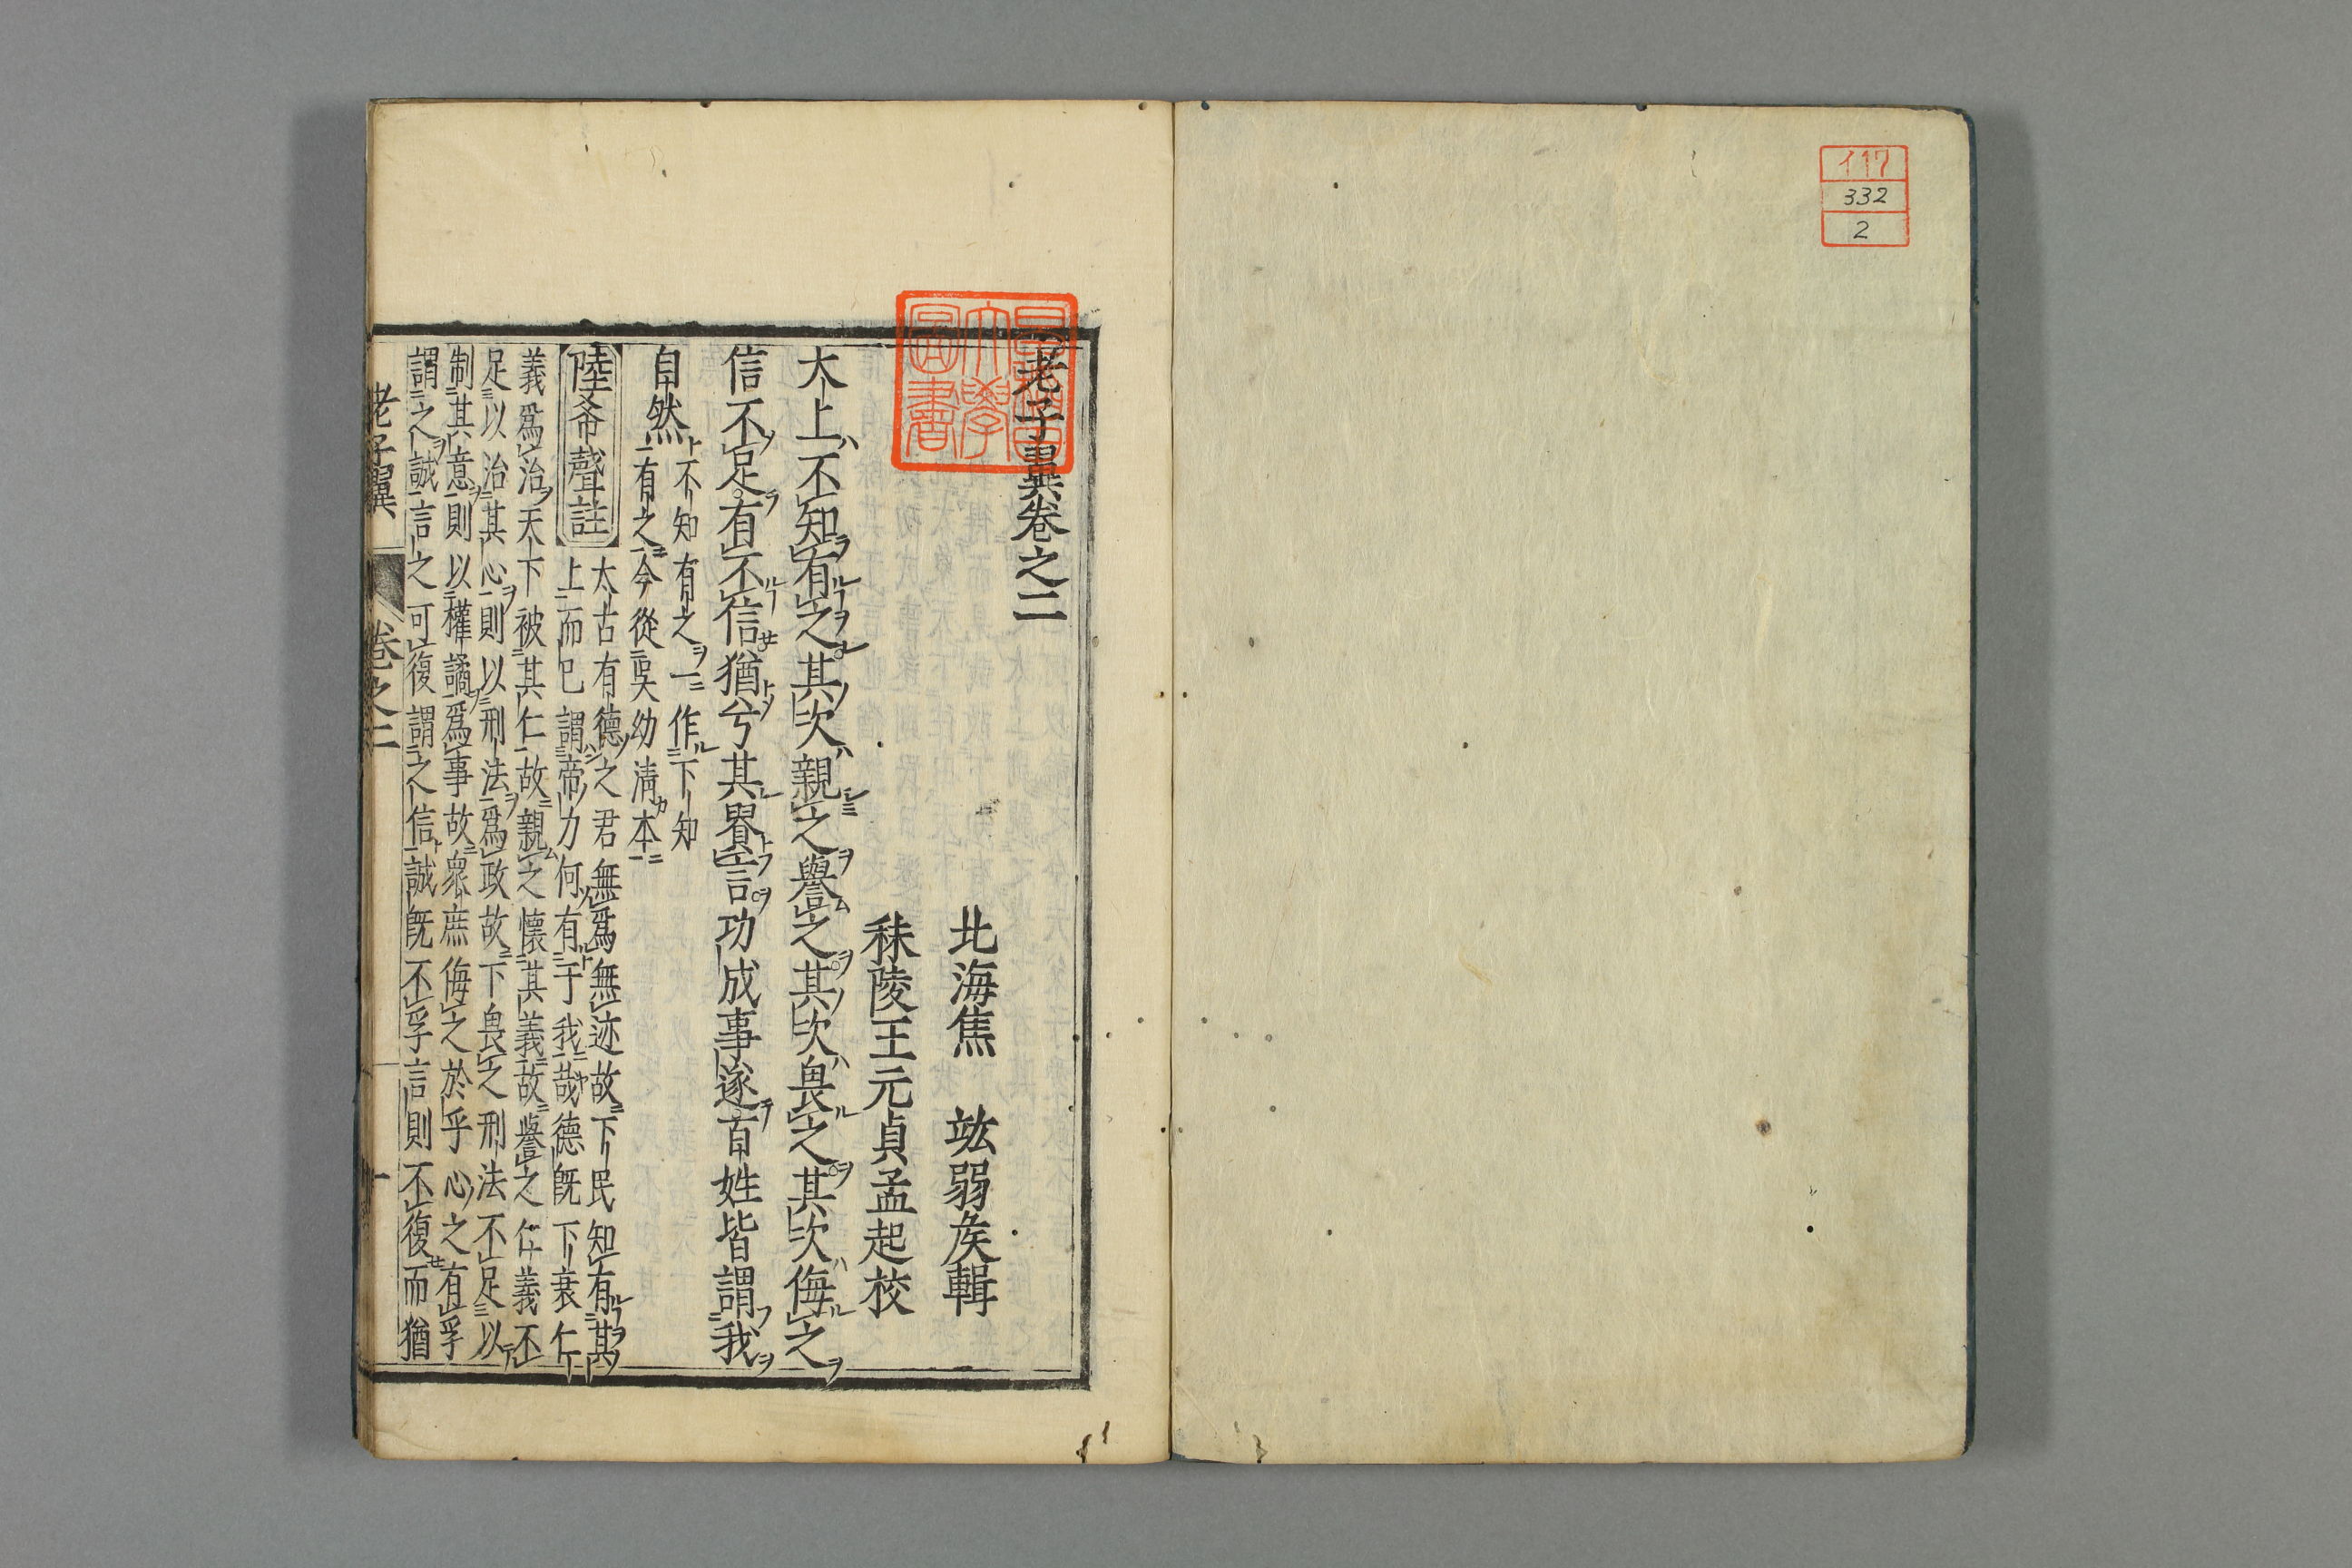 117
332
2
早稲田大學圖書
老子翼卷之二
北海焦 竑弱矦輯
秣陵王元貞孟起校
大上不知有之其次親之譽之其次畏之其次侮之
信不足有不信猶兮其貴言功成事遂百姓皆謂我
自然
不知有之一作下知
有之今從吳幼清本
陸希聲註
太古有德之君無爲無迹故下民知有其
上而已謂帝力何有于我哉德旣下衰仁
義爲治天下被其仁故親之懷其義故譽之仁義不
足以治其心則以刑法爲政故下畏之刑法不足以
制其意則以權譎爲事故衆庶侮之於乎心之有孚
謂之誠言之可復謂之信誠旣不孚言則不復而猶
老子翼 卷之二 一